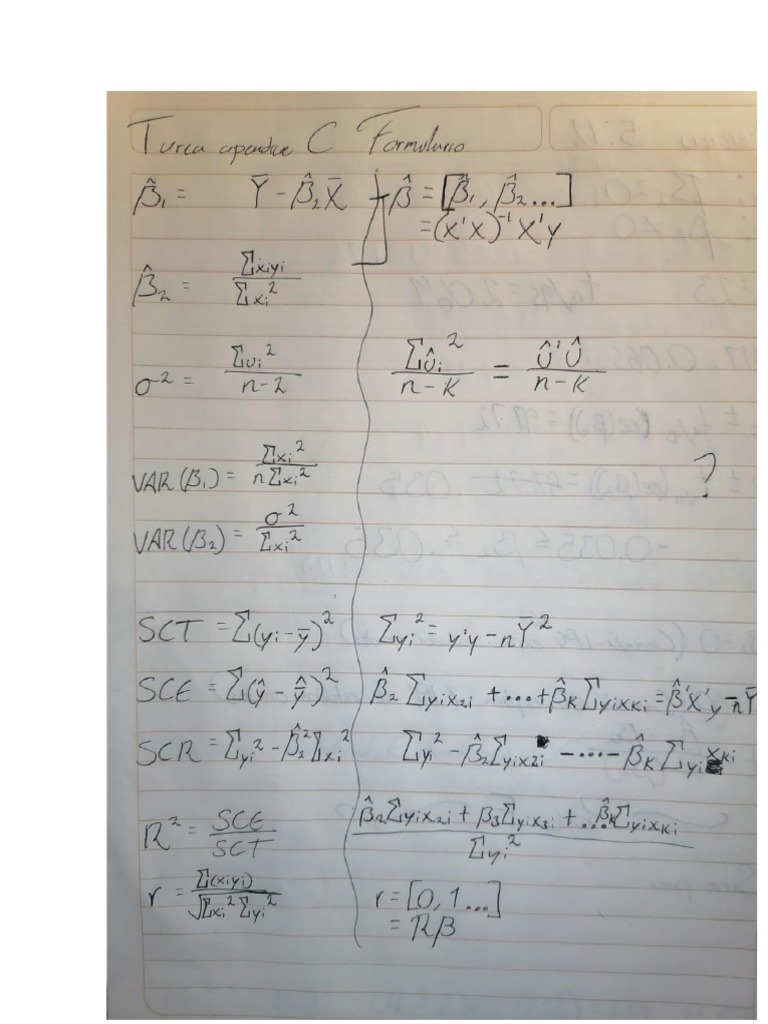 Tarea apendice C Formulario
β̂₁ = Ȳ - β̂₂X̄
β̂ = [β̂₁, β̂₂...]
= (X'X)⁻¹X'y
β̂₂ = Σxiyi / Σxi²
σ² = Σui² / n-2
Σûi² / n-K = û'û / n-K
VAR(β₁) = Σxi² / nΣxi²
?
VAR(β₂) = σ² / Σxi²
SCT = Σ(yi-ȳ)²
Σyi² = y'y - nȲ²
SCE = Σ(ŷ - ŷ̄)²
β̂₂ Σyix2i + ... + β̂K Σyixki = β̂'X'y - nȲ
SCR = Σyi² - β̂₂²Σxi²
Σyi² - β̂₂Σyix2i - ... - β̂K Σyixki
R² = SCE / SCT
β̂₂Σyix2i + β₃Σyix3i + ...β̂kΣyixki / Σyi²
r = Σ(xiyi) / √Σxi² Σyi²
r = [0, 1...]
= Rβ